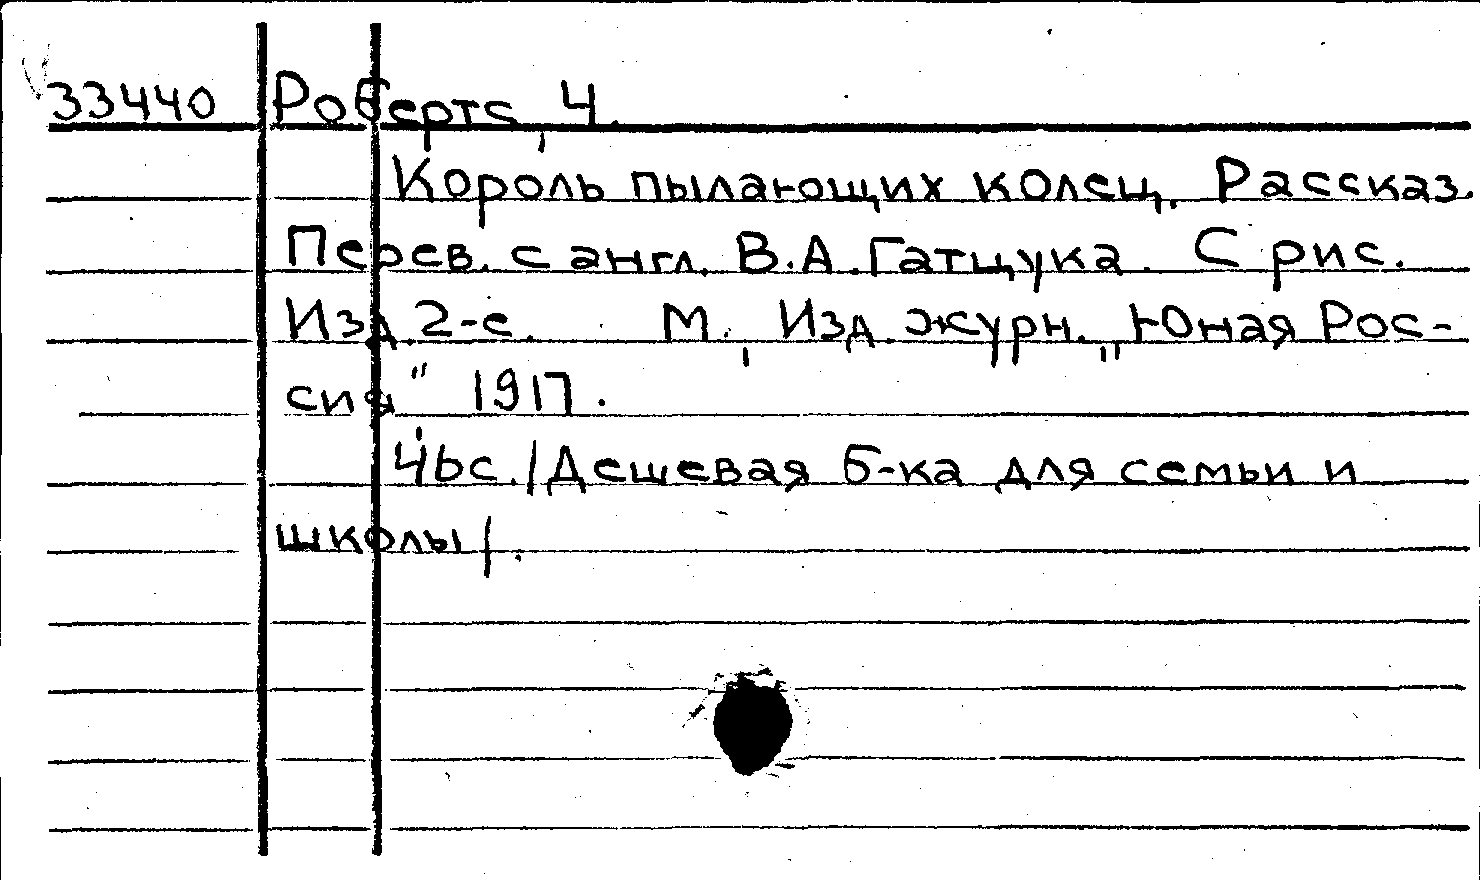 33440 Робертс, Ч.
Король пылающих колец. Рассказ.
Перев. с англ. В.А.Гатцука. С рис.
Изд. 2-е. М., Изд. журн. „Юная Рос-
сия" 1917.
46с. /Дешевая б-ка для семьи и
школы/.